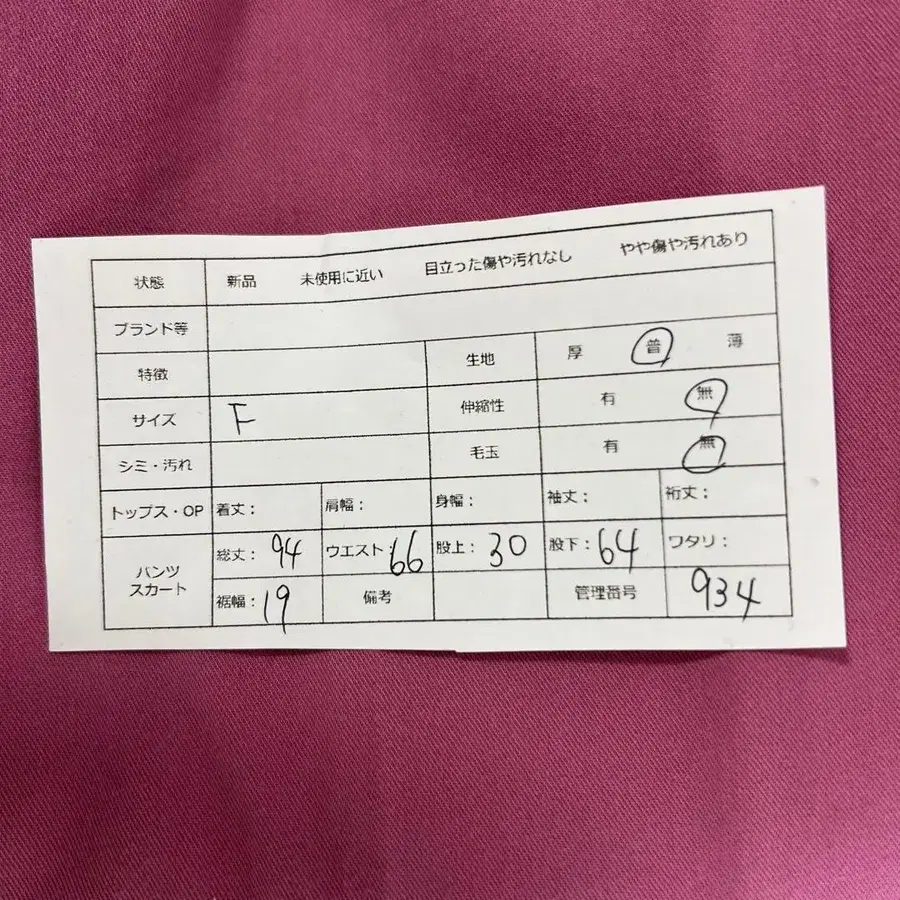 状態 新品 未使用に近い 目立った傷や汚れなし やや傷や汚れあり
ブランド等
特徴 生地 厚 普 薄
サイズ F 伸縮性 有 無
シミ・汚れ 毛玉 有 無
トップス・OP 着丈： 肩幅： 身幅： 袖丈： 裄丈：
パンツ スカート 総丈：94 ウエスト：66 股上：30 股下：64 ワタリ：
裾幅：19 備考 管理番号 934